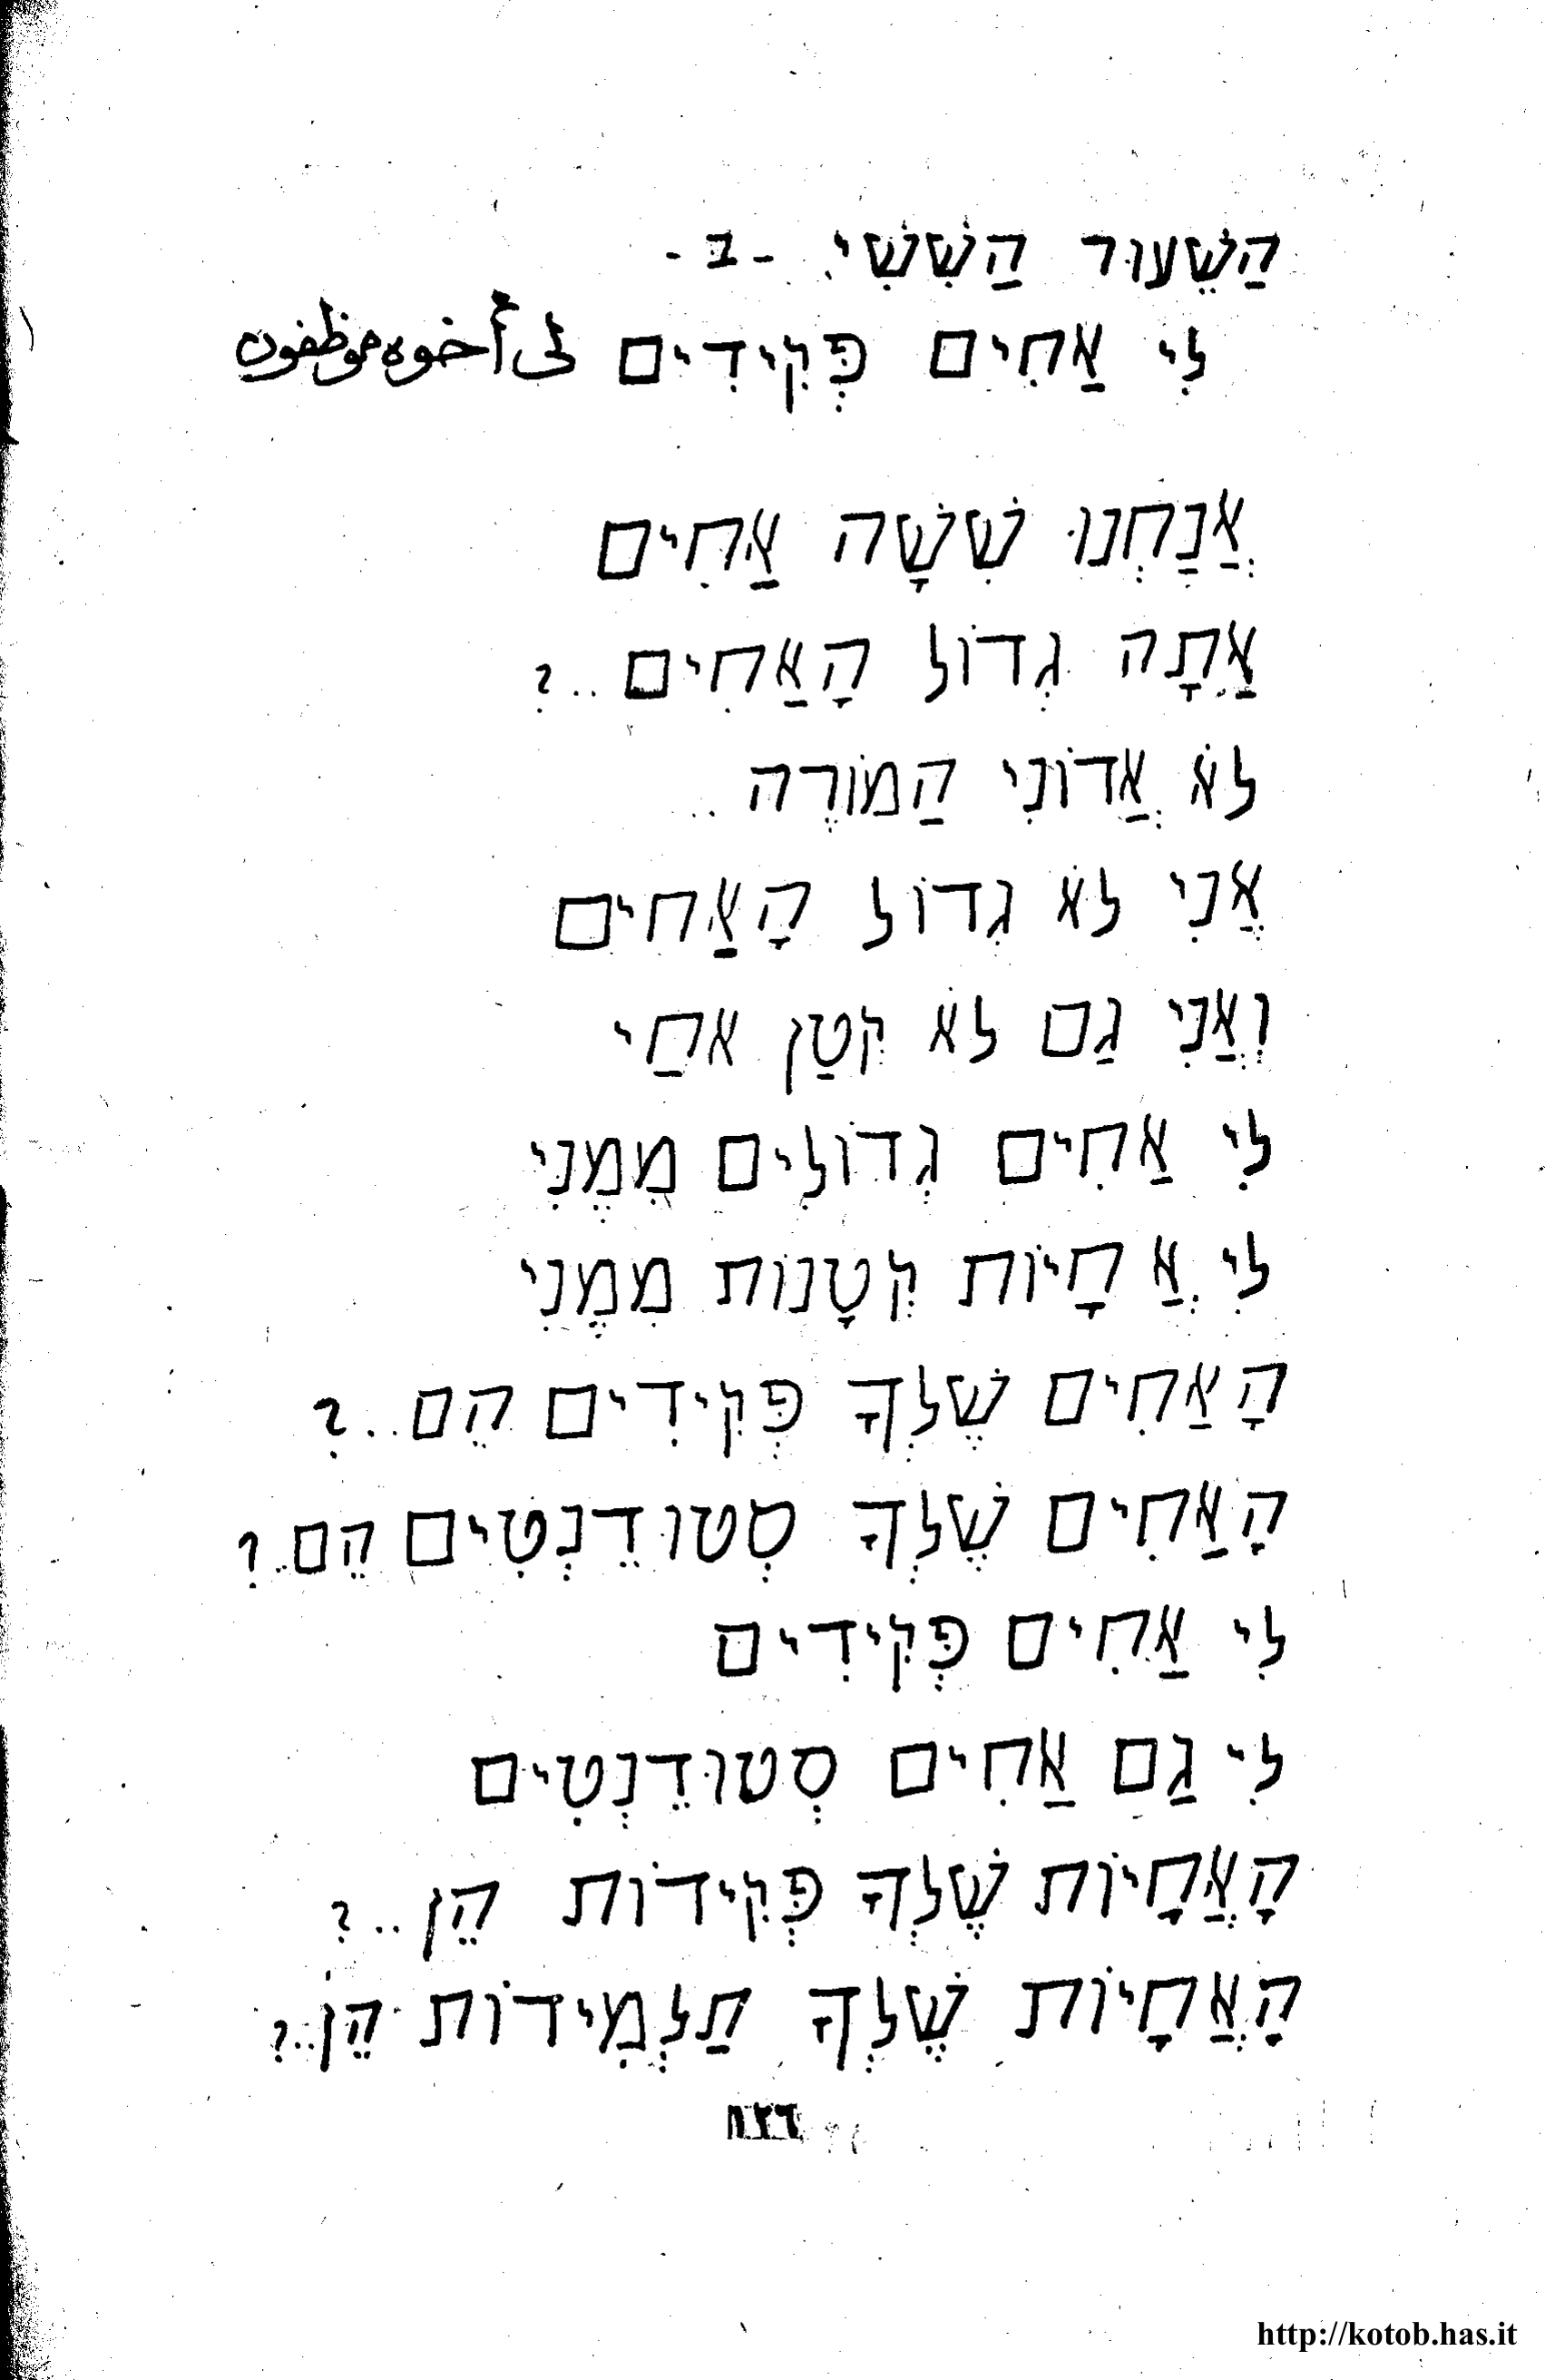 הַשֵׁעוּר הַשִּׁשִּׁי -ב-
לִי אַחִים פְּקִידִים لى أخوه موظفون
אֲנַחְנוּ שִׁשָּׁה אַחִים
אַתָּה גְדוֹל הָאַחִים..?
לֹא אֲדוֹנִי הַמוֹרֶה ..
אֲנִי לֹא גְדוֹל הָאַחִים
וְאֲנִי גַם לֹא קְטַן אחַי
לִי אַחִים גְדוֹלִים מִמֶנִי
לִי אֲחָיוֹת קְטָנוֹת מִמֶנִי
הָאַחִים שֶׁלְךָ פְּקִידִים הֵם..?
הָאַחִים שֶׁלְךָ סְטוּדֵנְטִים הֵם..?
לִי אַחִים פְּקִידִים
לִי גַם אַחִים סְטוּדֵנְטִים
הָאֲחָיוֹת שֶׁלְךָ פְּקִידוֹת הֵן..?
הָאֲחָיוֹת שֶׁלְךָ תַלְמִידוֹת הֵן..?
http://kotob.has.it